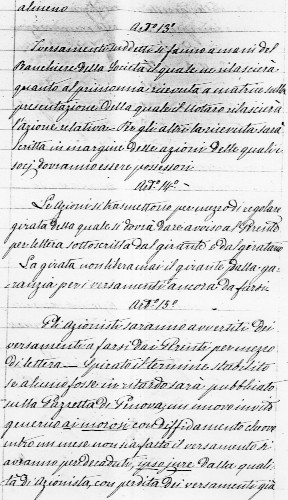 almeno
Art.° 13.°
I versamenti suddetti si fanno a mani del
Banchiere della Società il quale ne rilascierà
quanto al primo una ricevuta a matrice sulla
presentazione della quale il Notaro rilascierà
l'azione relativa. Per gli altri la ricevuta sarà
scritta in margine delle azioni delle quali i
socj dovranno essere possessori.
Art.° 14.°
Le Azioni si trasmettono per mezzo di regolare
girata della quale si dovrà dare avviso al
per lettera sottoscritta dal girante e dal giratario
La girata non libera mai il girante dalla ga-
ranzia per i versamenti ancora da farsi.
Art.° 15.°
Gli azionisti saranno avvertiti dei
versamenti a farsi dai per mezzo
di lettera — Spirato il termine stabilito
se alcuno fosse in ritardo sarà pubblicato
sulla Gazzetta di Genova, un nuovo invito
generico ai morosi con diffidamento che ove
entro un mese non sia fatto il versamento si
avranno per decaduti, ipso jure dalla quali-
tà di azionista, con perdita dei versamenti già